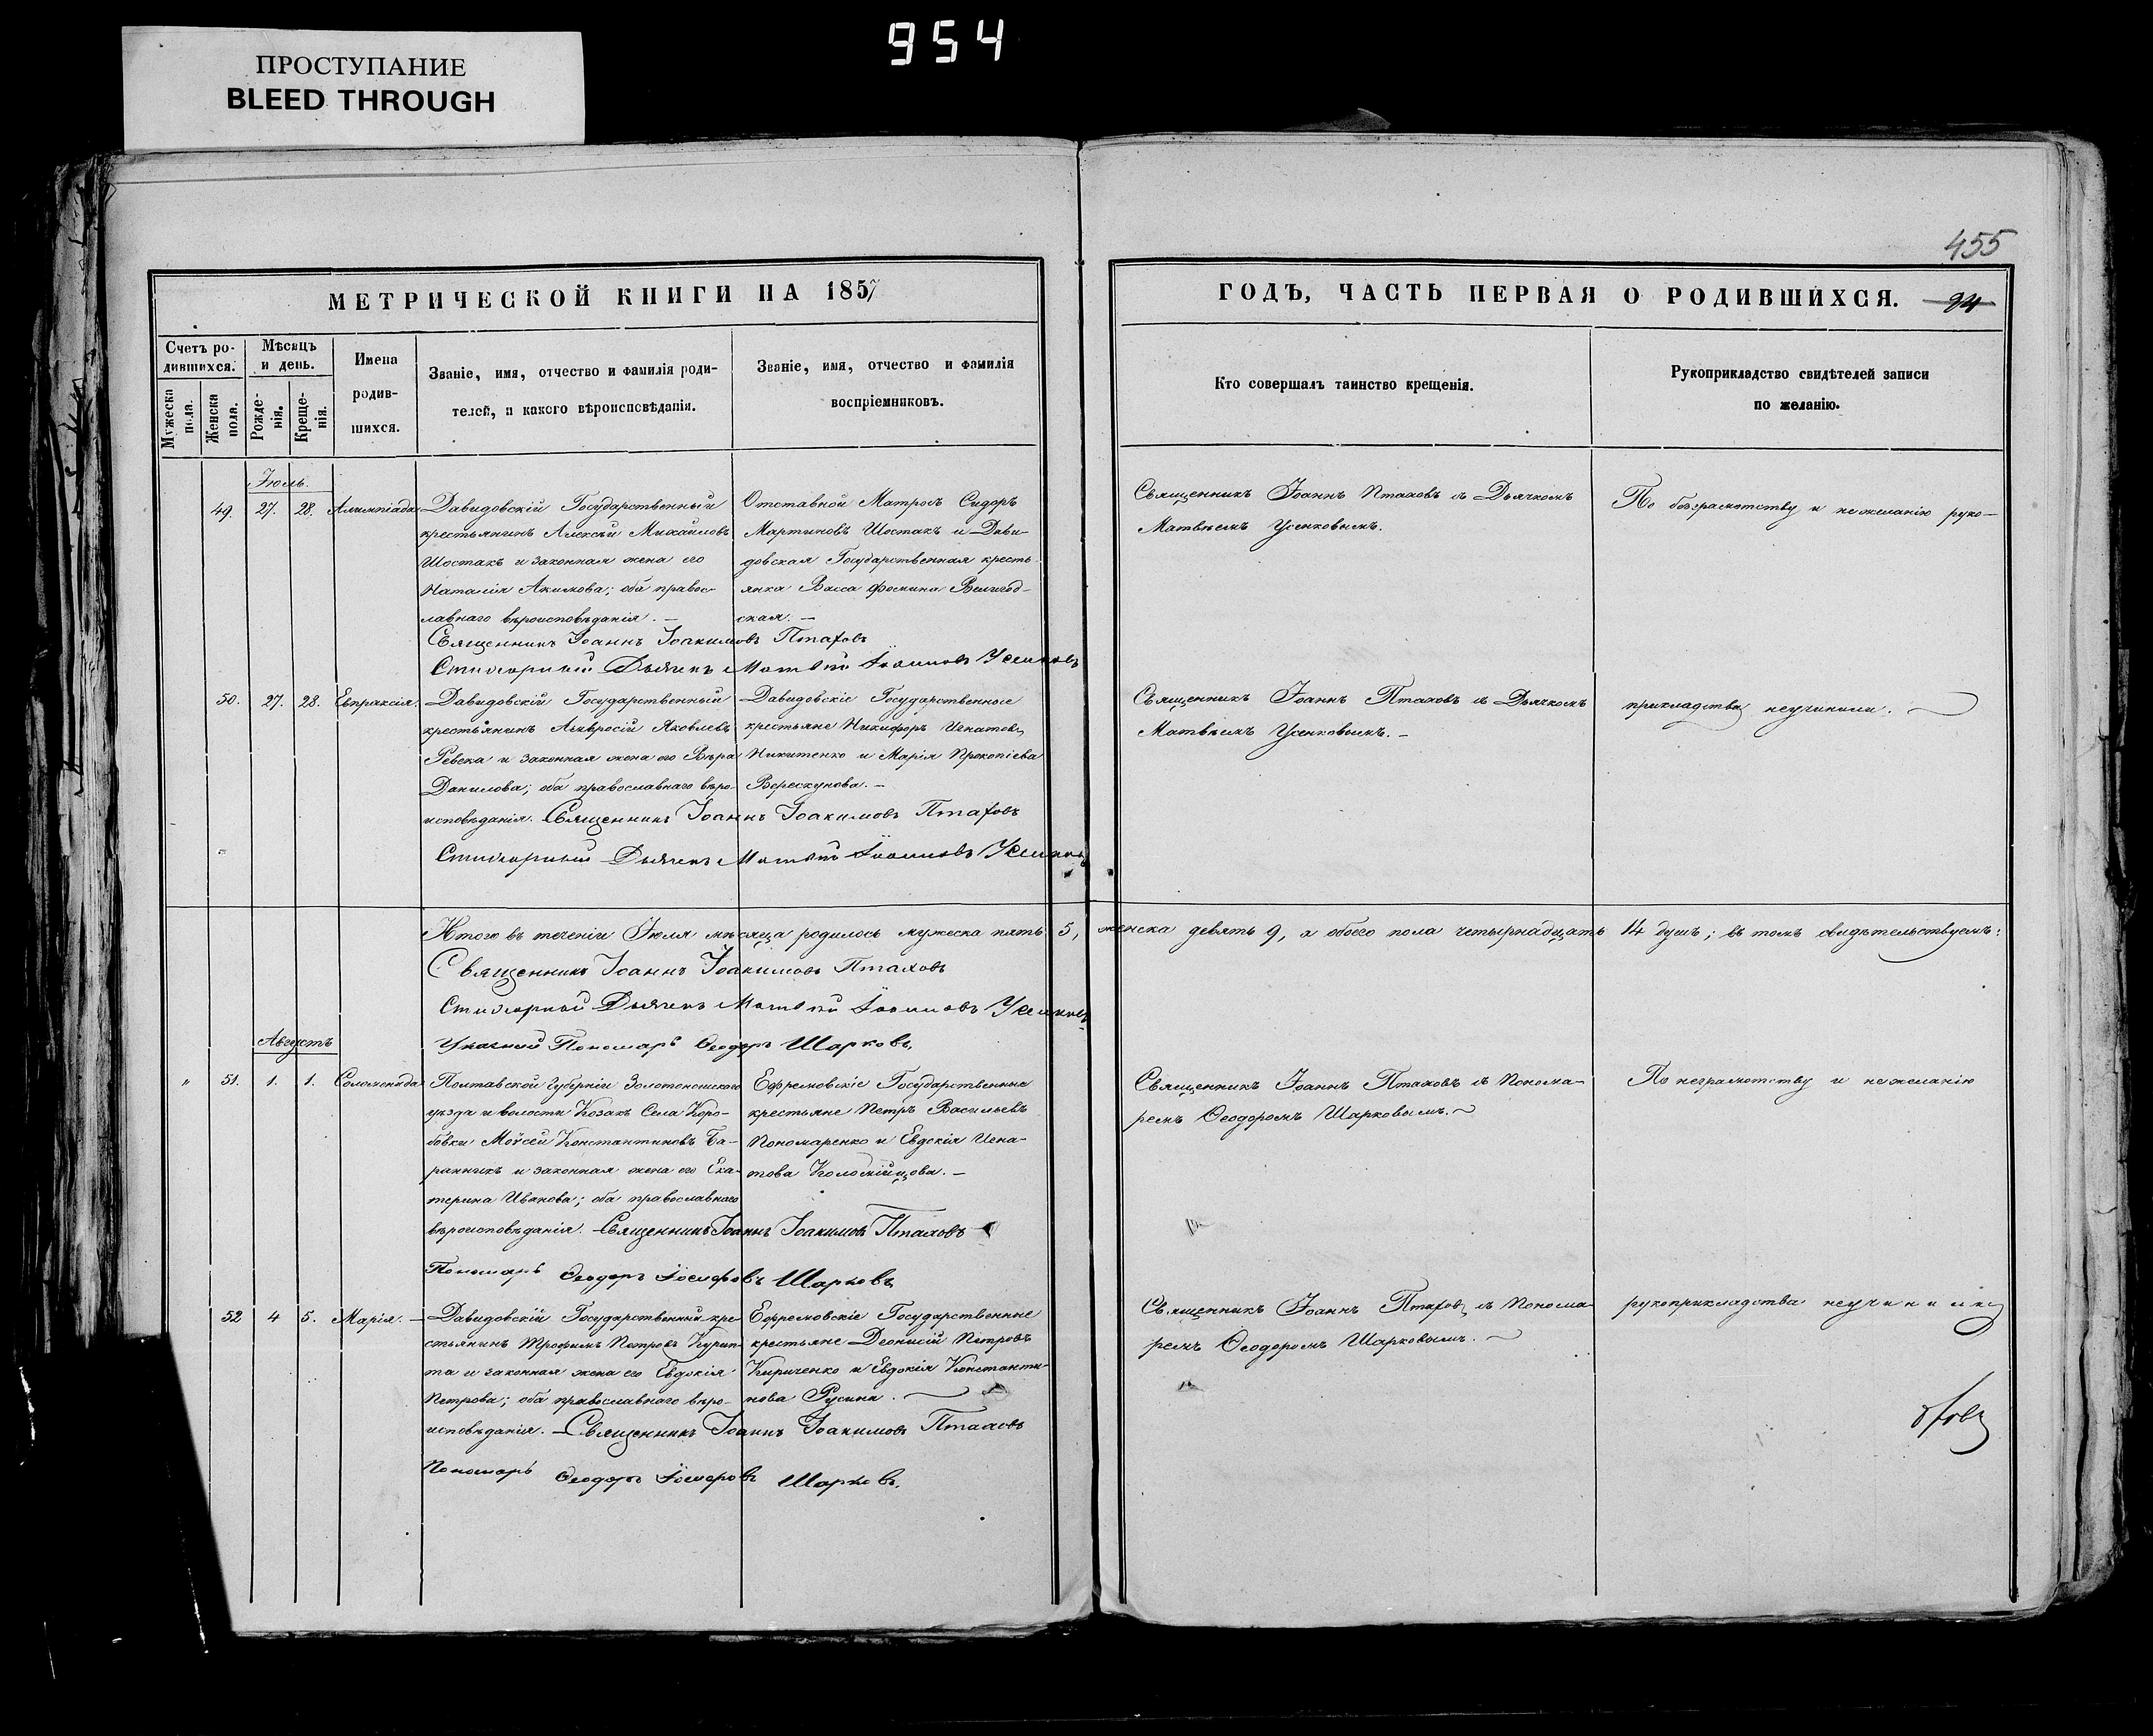 954
ПРОСТУПАНИЕ
BLEED THROUGH
455
МЕТРИЧЕСКОЙ КНИГИ НА 1857
Счетъ ро-
дившихся.
Мужеска
пола.
Женска
пола.
Мѣсяцъ
и день.
Рожде-
нія.
Креще-
нія.
Имена
родив-
шихся.
Званіе, имя, отчество и фамилія роди-
телей, и какого вѣроисповѣданія.
Званіе, имя, отчество и фамилія
воспріемниковъ.
ГОДЪ, ЧАСТЬ ПЕРВАЯ О РОДИВШИХСЯ.
Кто совершалъ таинство крещенія.
Рукоприкладство свидѣтелей записи
по желанію.
Іюль.
49. 27. 28. Алимпіада
Давидовскій Государственный
крестьянинъ Алексѣй Михайловъ
Шостакъ и законная жена его
Наталія Акимова; оба правос-
лавнаго вѣроисповѣданія. —
Отставной Матросъ Сидоръ
Мартиновъ Шостакъ и Дави-
довская Государственная кресть-
янка Васса Фомина Величод-
ская. —
Священникъ Іоаннъ Іоакимовъ Птаховъ
Стихарный Дьячекъ Матвѣй Іоанновъ Усенковъ
Священникъ Іоаннъ Птаховъ съ Дьячкомъ
Матвѣемъ Усенковымъ.
По безграмотству и нежеланію руко-
50. 27. 28. Евпраксія.
Давидовскій Государственный
крестьянинъ Амвросій Яковлевъ
Ревека и законная жена его Вѣра
Данилова; оба православнаго вѣро-
исповѣданія.
Давидовскіе Государственные
крестьяне Никифоръ Игнатовъ
Никитенко и Марія Прокопіева
Верескунова. —
Священникъ Іоаннъ Іоакимовъ Птаховъ
Стихарный Дьячекъ Матвѣй Іоанновъ Усенковъ
Священникъ Іоаннъ Птаховъ съ Дьячкомъ
Матвѣемъ Усенковымъ. —
прикладства неучинили.
Итого въ теченіи Іюля мѣсяца родилось мужеска пять 5, женска девять 9, а обоего пола четырнадцать 14 душъ; въ томъ свидѣтельствуемъ:
Священникъ Іоаннъ Іоакимовъ Птаховъ
Стихарный Дьячекъ Матвѣй Іоанновъ Усенковъ
Указный Пономарь Ѳеодоръ Шарковъ
Августъ
" 51. 1. 1. Соломонида
Полтавской Губерніи Золотоношскаго
уѣзда и волости Козакъ Села Коро-
бовки Моѵсей Константиновъ Ба-
ранникъ и законная жена его Ека-
терина Иванова; оба православнаго
вѣроисповѣданія.
Ефремовскіе Государственные
крестьяне Петръ Васильевъ
Пономаренко и Евдокія Игна-
това Коломійцова. —
Священникъ Іоаннъ Іоакимовъ Птаховъ
Пономарь Ѳеодоръ Іосифовъ Шарковъ
Священникъ Іоаннъ Птаховъ съ Понома-
ремъ Ѳеодоромъ Шарковымъ.
По неграмотству и нежеланію
52 4 5. Марія. —
Давидовскій Государственный кре-
стьянинъ Трофимъ Петровъ Курип-
та и законная жена его Евдокія
Петрова; оба православнаго вѣро-
исповѣданія. —
Ефремовскіе Государственные
крестьяне Деонисій Петровъ
Кириченко и Евдокія Константи-
нова Русина.
Священникъ Іоаннъ Іоакимовъ Птаховъ
Пономарь Ѳеодоръ Іосифовъ Шарковъ.
Священникъ Іоаннъ Птаховъ съ Понома-
ремъ Ѳеодоромъ Шарковымъ.
рукоприкладства неучинили